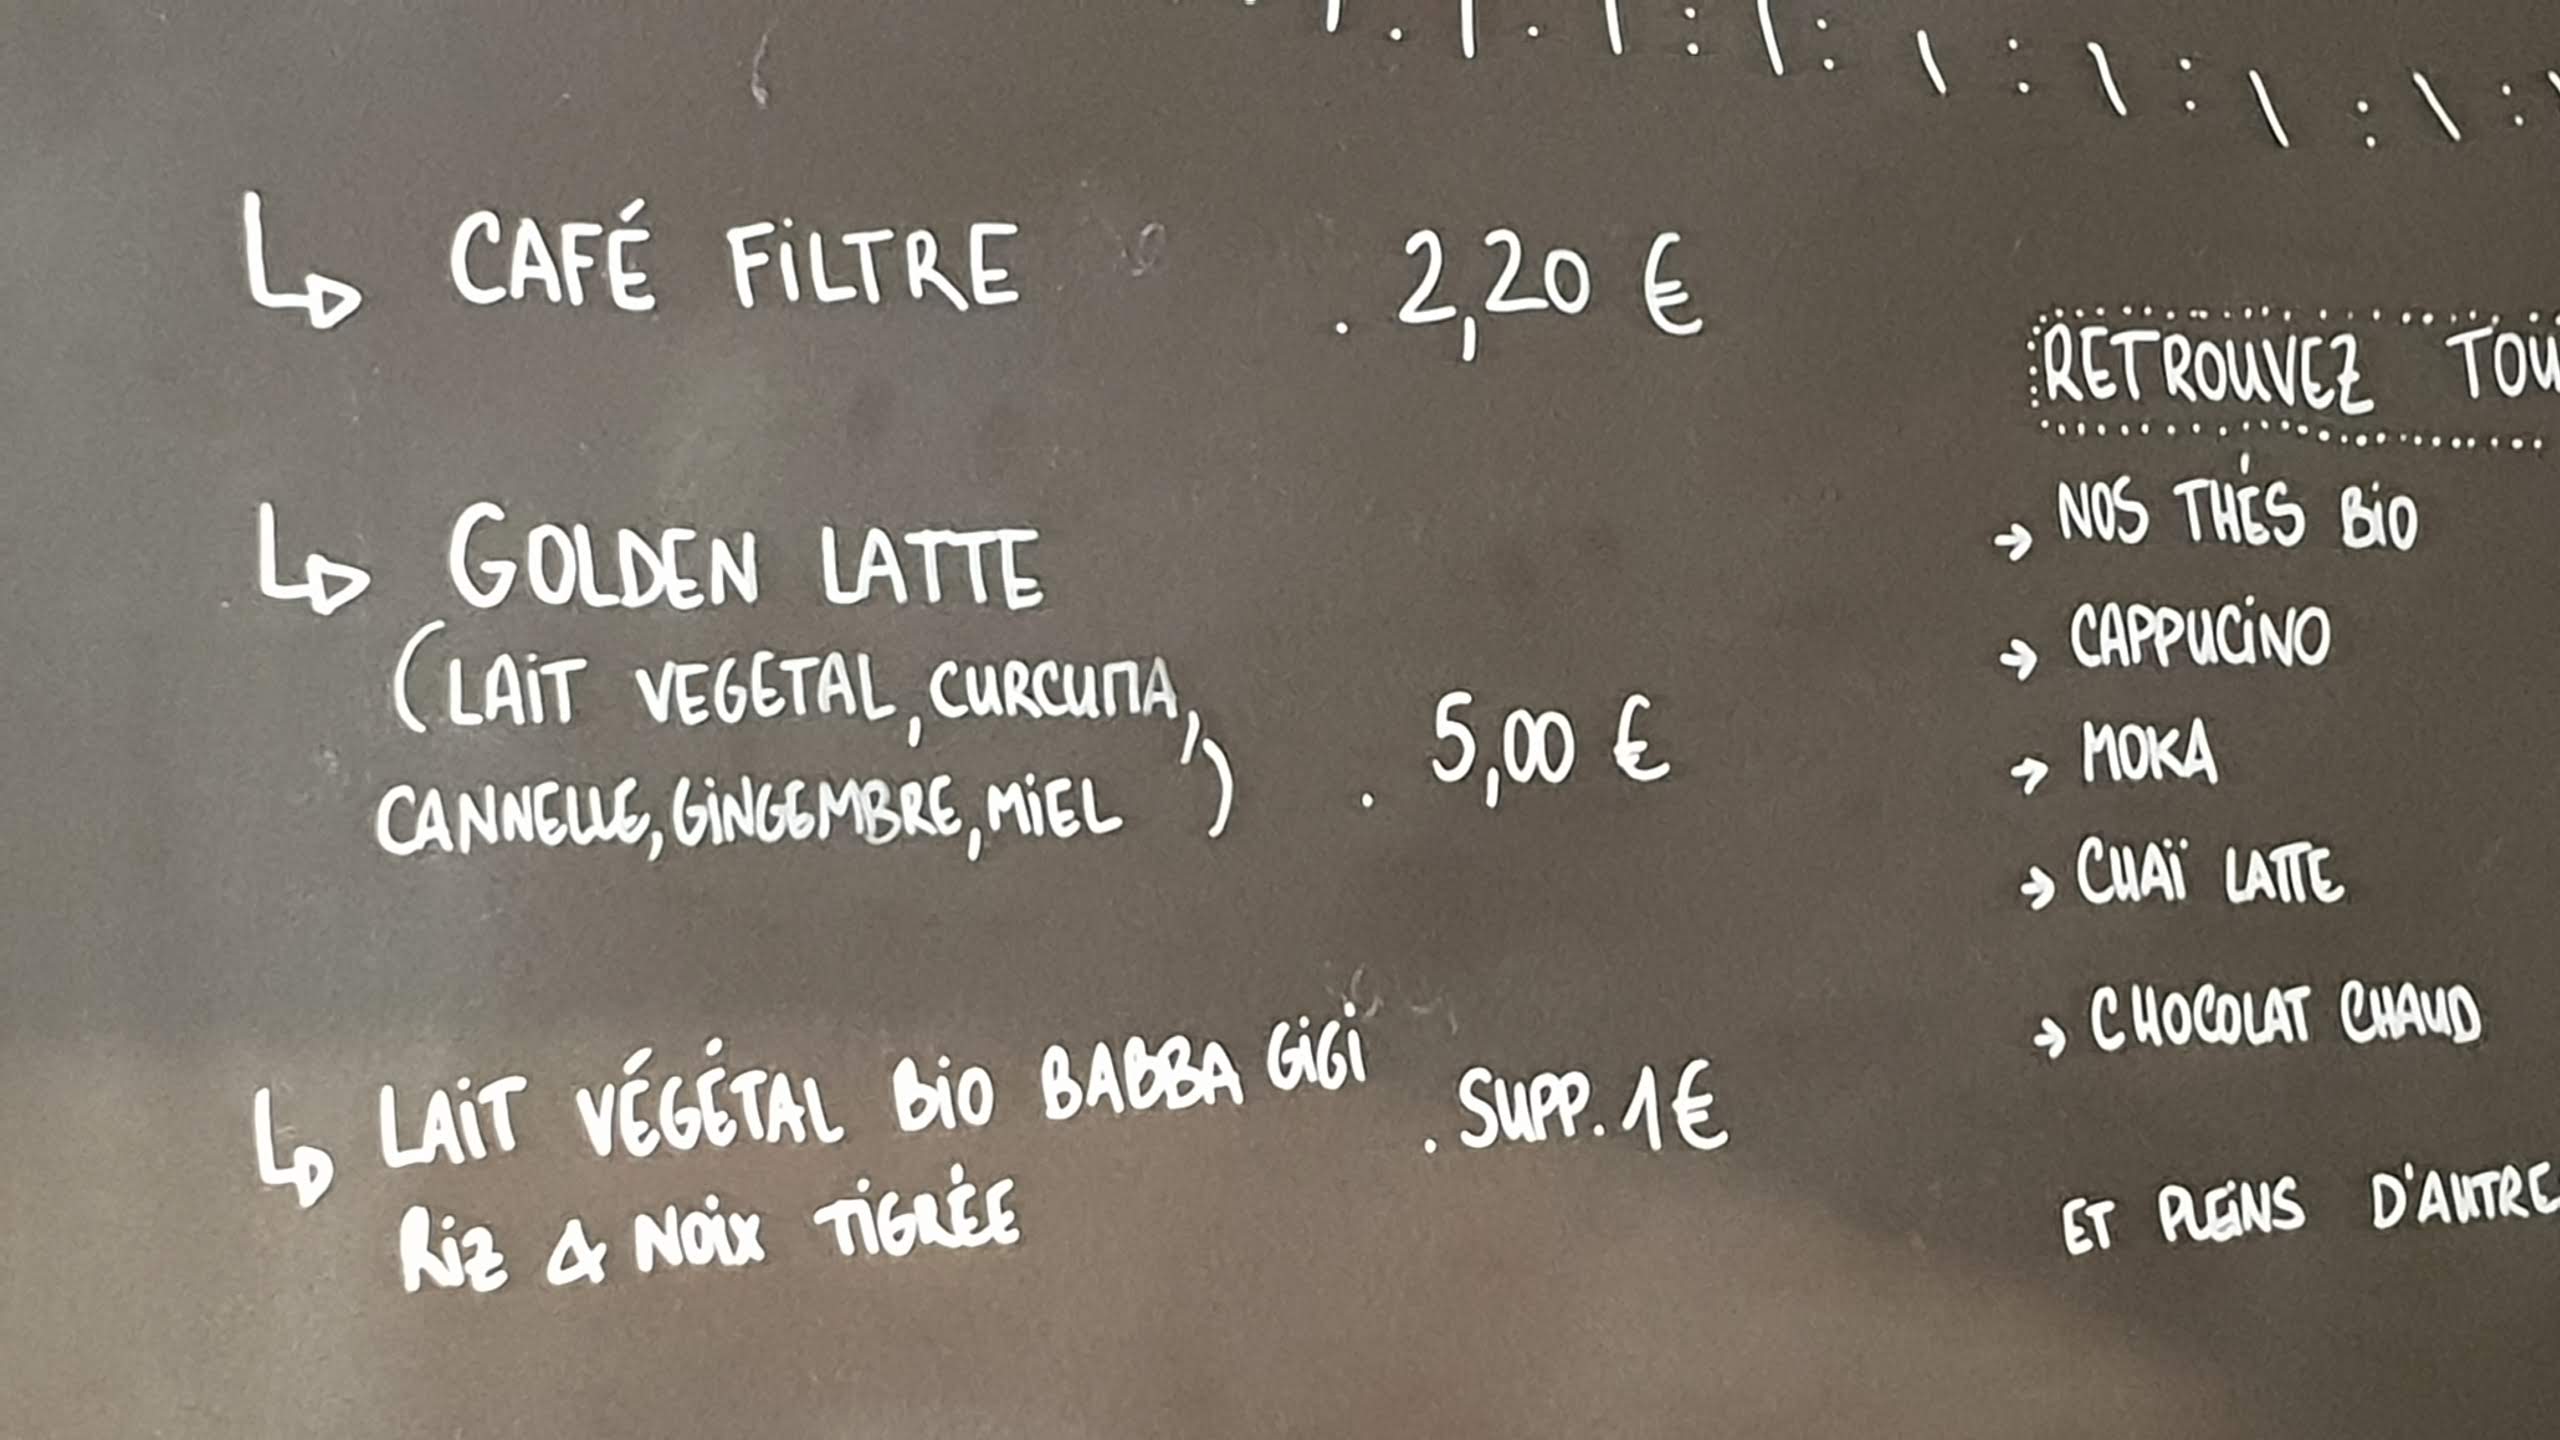 CAFÉ FILTRE . 2,20 €
GOLDEN LATTE
(LAIT VEGETAL, CURCUMA,
CANNELLE, GINGEMBRE, MIEL) . 5,00 €
LAIT VÉGÉTAL BIO BABBA GIGI . SUPP. 1€
RIZ & NOIX TIGRÉE
RETROUVEZ TOU
→ NOS THÉS BIO
→ CAPPUCINO
→ MOKA
→ CHAÏ LATTE
→ CHOCOLAT CHAUD
ET PLEINS D'AUTRE